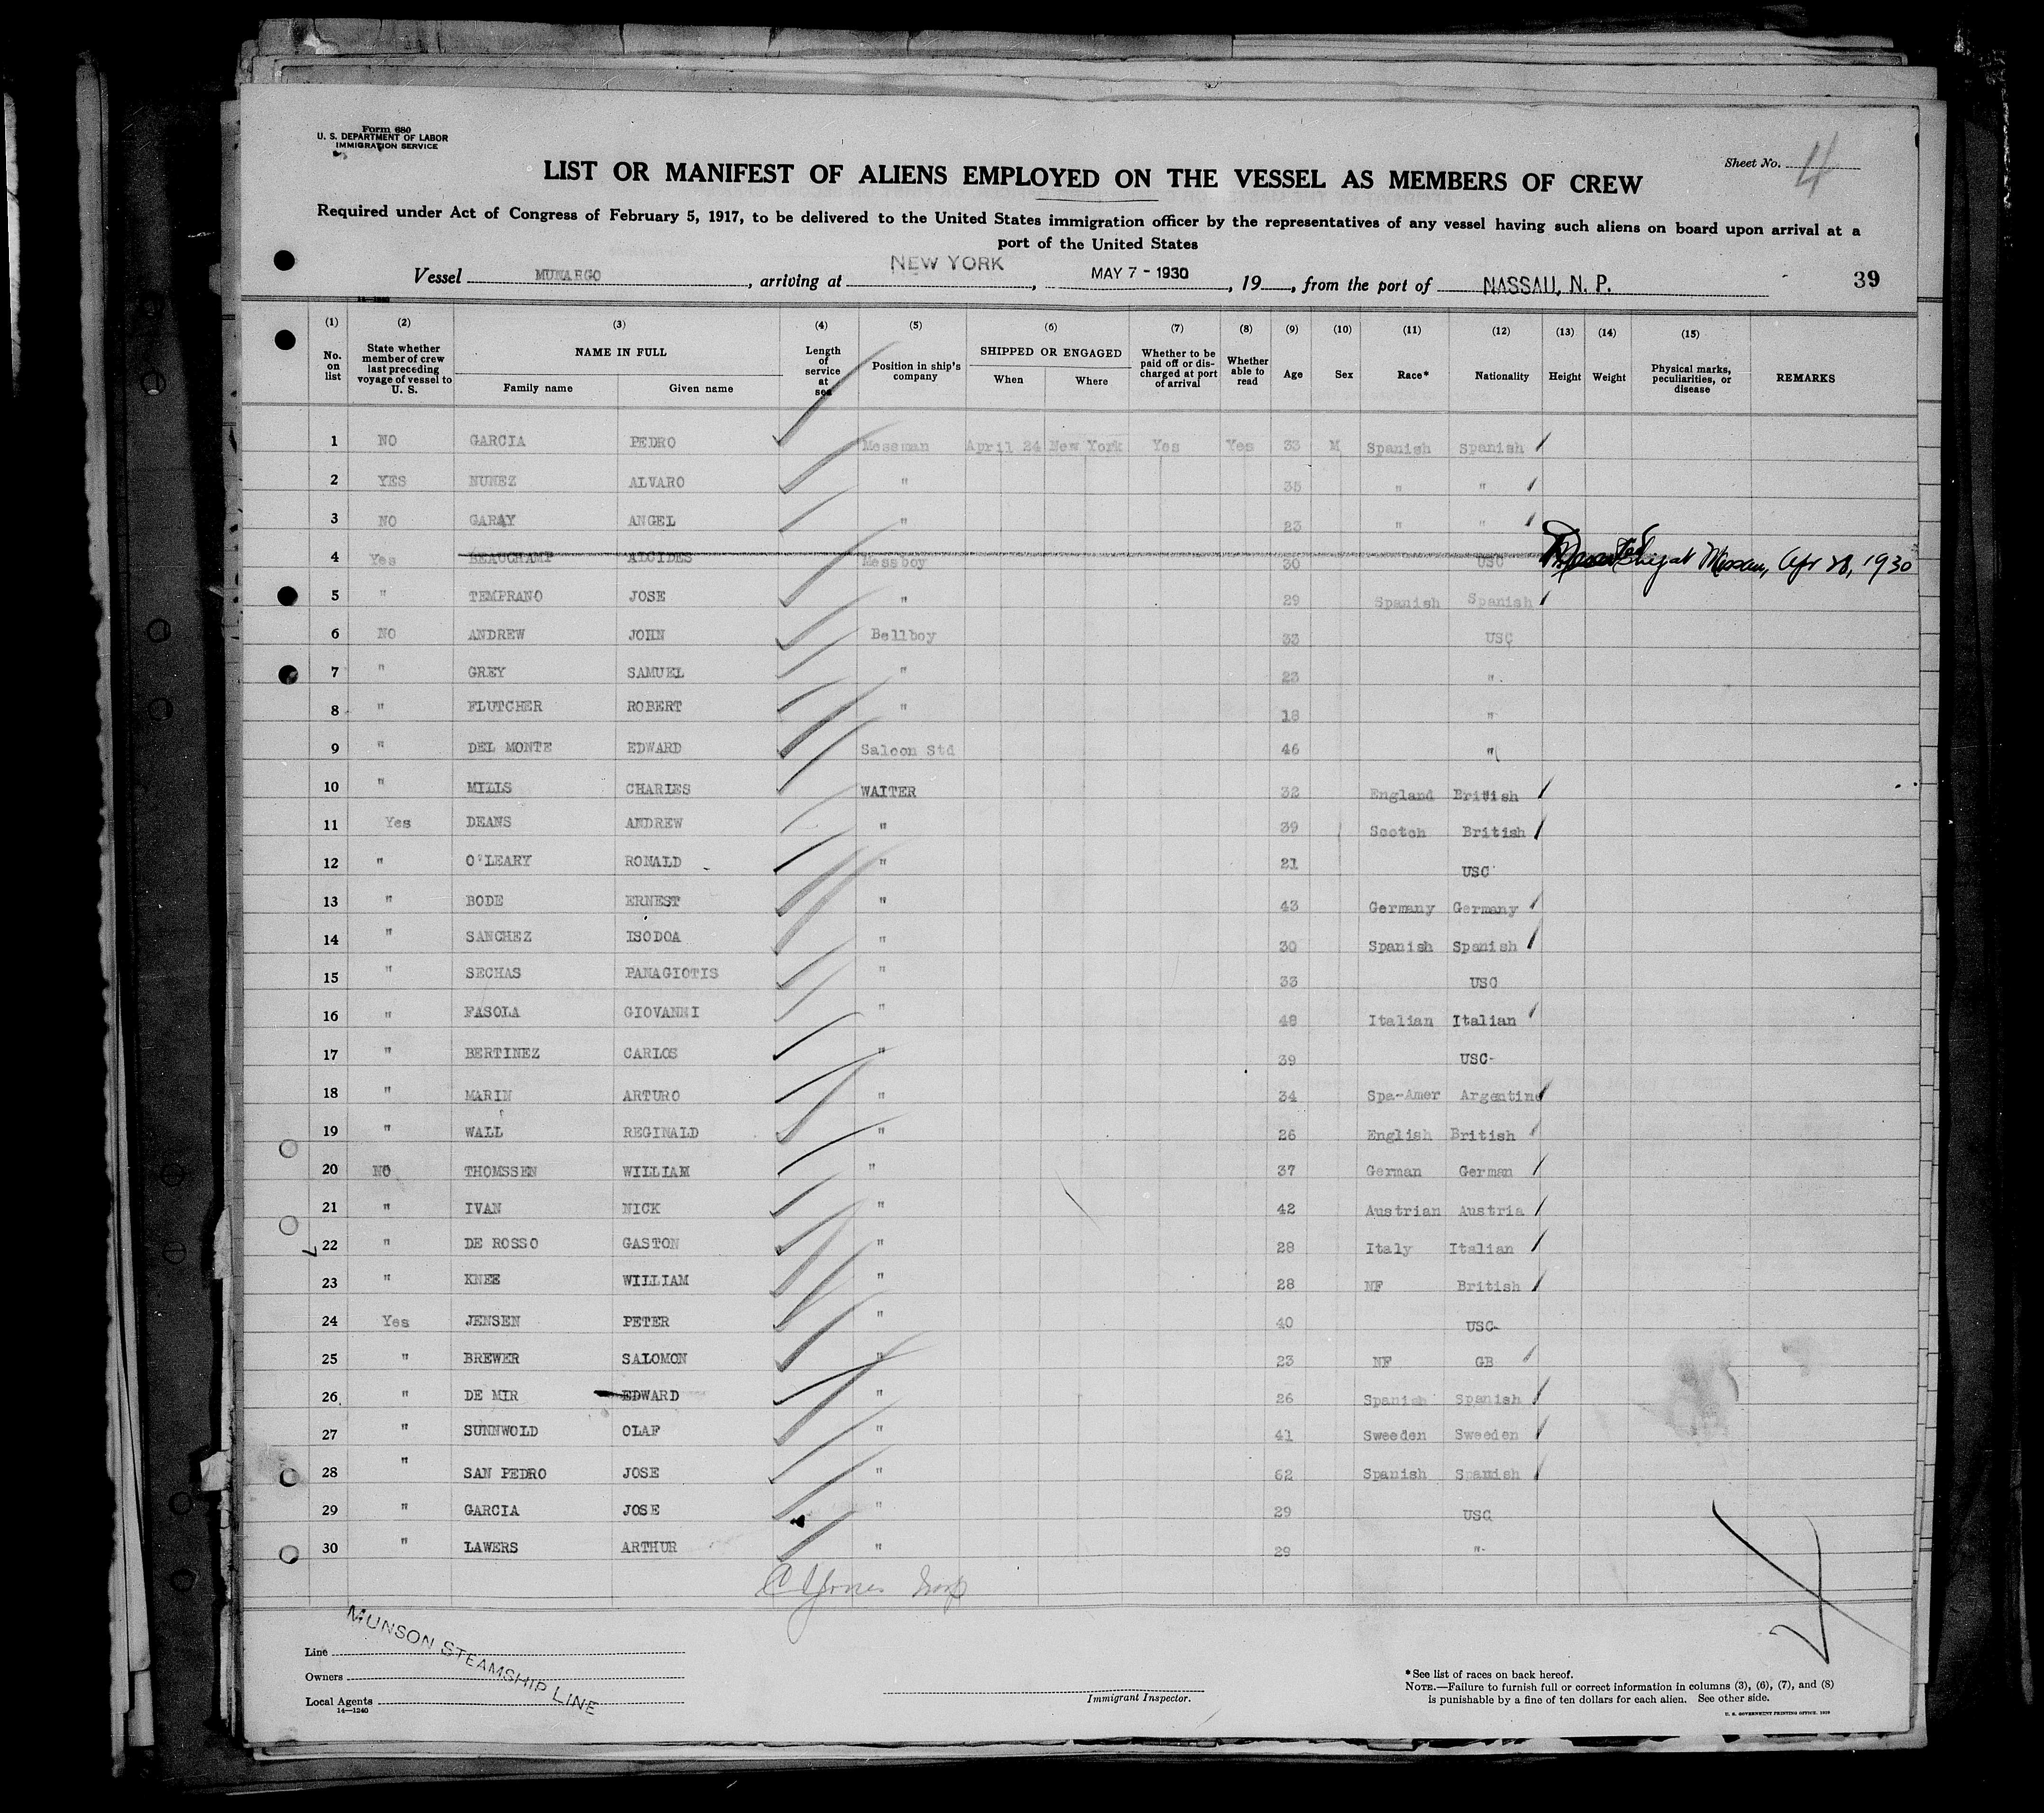 Form 680
U. S. DEPARTMENT OF LABOR
IMMIGRATION SERVICE
Sheet No. 4
LIST OR MANIFEST OF ALIENS EMPLOYED ON THE VESSEL AS MEMBERS OF CREW
Required under Act of Congress of February 5, 1917, to be delivered to the United States immigration officer by the representatives of any vessel having such aliens on board upon arrival at a
port of the United States
Vessel MUNARGO, arriving at NEW YORK, MAY 7 - 1930, 19, from the port of NASSAU, N. P. 39
(1) (2) (3) (4) (5) (6) (7) (8) (9) (10) (11) (12) (13) (14) (15)
No. on list State whether member of crew last preceding voyage of vessel to U. S. NAME IN FULL Family name Given name Length of service at sea Position in ship's company SHIPPED OR ENGAGED When Where Whether to be paid off or discharged at port of arrival Whether able to read Age Sex Race* Nationality Height Weight Physical marks, peculiarities, or disease REMARKS
1 NO GARCIA PEDRO Messman April 24 New York Yes Yes 33 M Spanish Spanish
2 YES NUNEZ ALVARO " 35 " "
3 NO GARAY ANGEL " 23 " "
4 Yes BEAUCHAMP ALCIDES Messboy 30 USC Apr 28, 1930
5 " TEMPRANO JOSE " 29 Spanish Spanish
6 NO ANDREW JOHN Bellboy 33 USC
7 " GREY SAMUEL " 23 "
8 " FLUTCHER ROBERT " 18 "
9 " DEL MONTE EDWARD Saloon Std 46 "
10 " MILLS CHARLES WAITER 32 England British
11 Yes DEANS ANDREW " 39 Scotch British
12 " O'LEARY RONALD " 21 USC
13 " BODE ERNEST " 43 Germany Germany
14 " SANCHEZ ISODOA " 30 Spanish Spanish
15 " SECHAS PANAGIOTIS " 33 USC
16 " FASOLA GIOVANNI " 48 Italian Italian
17 " BERTINEZ CARLOS " 39 USC-
18 " MARIN ARTURO " 34 Spa-Amer Argentine
19 " WALL REGINALD " 26 English British
20 NO THOMSSEN WILLIAM " 37 German German
21 " IVAN NICK " 42 Austrian Austria
22 " DE ROSSO GASTON " 28 Italy Italian
23 " KNEE WILLIAM " 28 NF British
24 Yes JENSEN PETER " 40 USC-
25 " BREWER SALOMON " 23 NF GB
26 " DE MIR EDWARD " 26 Spanish Spanish
27 " SUNNWOLD OLAF " 41 Sweeden Sweeden
28 " SAN PEDRO JOSE " 62 Spanish Spanish
29 " GARCIA JOSE " 29 USC
30 " LAWERS ARTHUR " 29 "
Line
Owners
Local Agents
MUNSON STEAMSHIP LINE
14—1240
Immigrant Inspector.
*See list of races on back hereof.
NOTE.—Failure to furnish full or correct information in columns (3), (6), (7), and (8)
is punishable by a fine of ten dollars for each alien. See other side.
U. S. GOVERNMENT PRINTING OFFICE. 1929